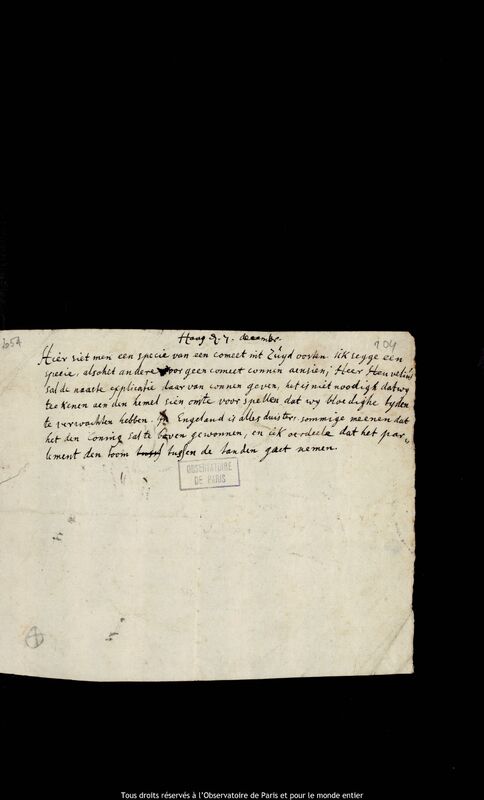 Haag d. 7. decembr.
1654
104
Hier siet men een specie van een comeet int Zuyd oosten. iik segge een
specie, alsoh et andere voor geen comeet connen aensien; Heer Heuvelius
sal de naaste explicatie daar van connen geven, het is niet noodigh dat wy
teekenen aen den hemel sien omte voor spellen dat wy bloedighe tyden
te verwachten hebben. In Engeland is alles duister, sommige meenen dat
het den Coning sal te baven gewonnen, en iik oordeele dat het par„
lement den toom tussen de tanden gaet nemen.
OBSERVATOIRE
DE PARIS
Tous droits réservés à l'Observatoire de Paris et pour le monde entier